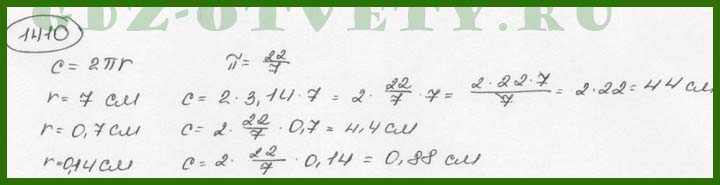 GDZ-OTVETY.RU
1410
c = 2πr π = 22/7
r = 7 см c = 2 · 3,14 · 7 = 2 · 22/7 · 7 = 2 · 22 · 7/7 = 2 · 22 = 44 см
r = 0,7 см c = 2 · 22/7 · 0,7 = 4,4 см
r = 0,14 см c = 2 · 22/7 · 0,14 = 0,88 см